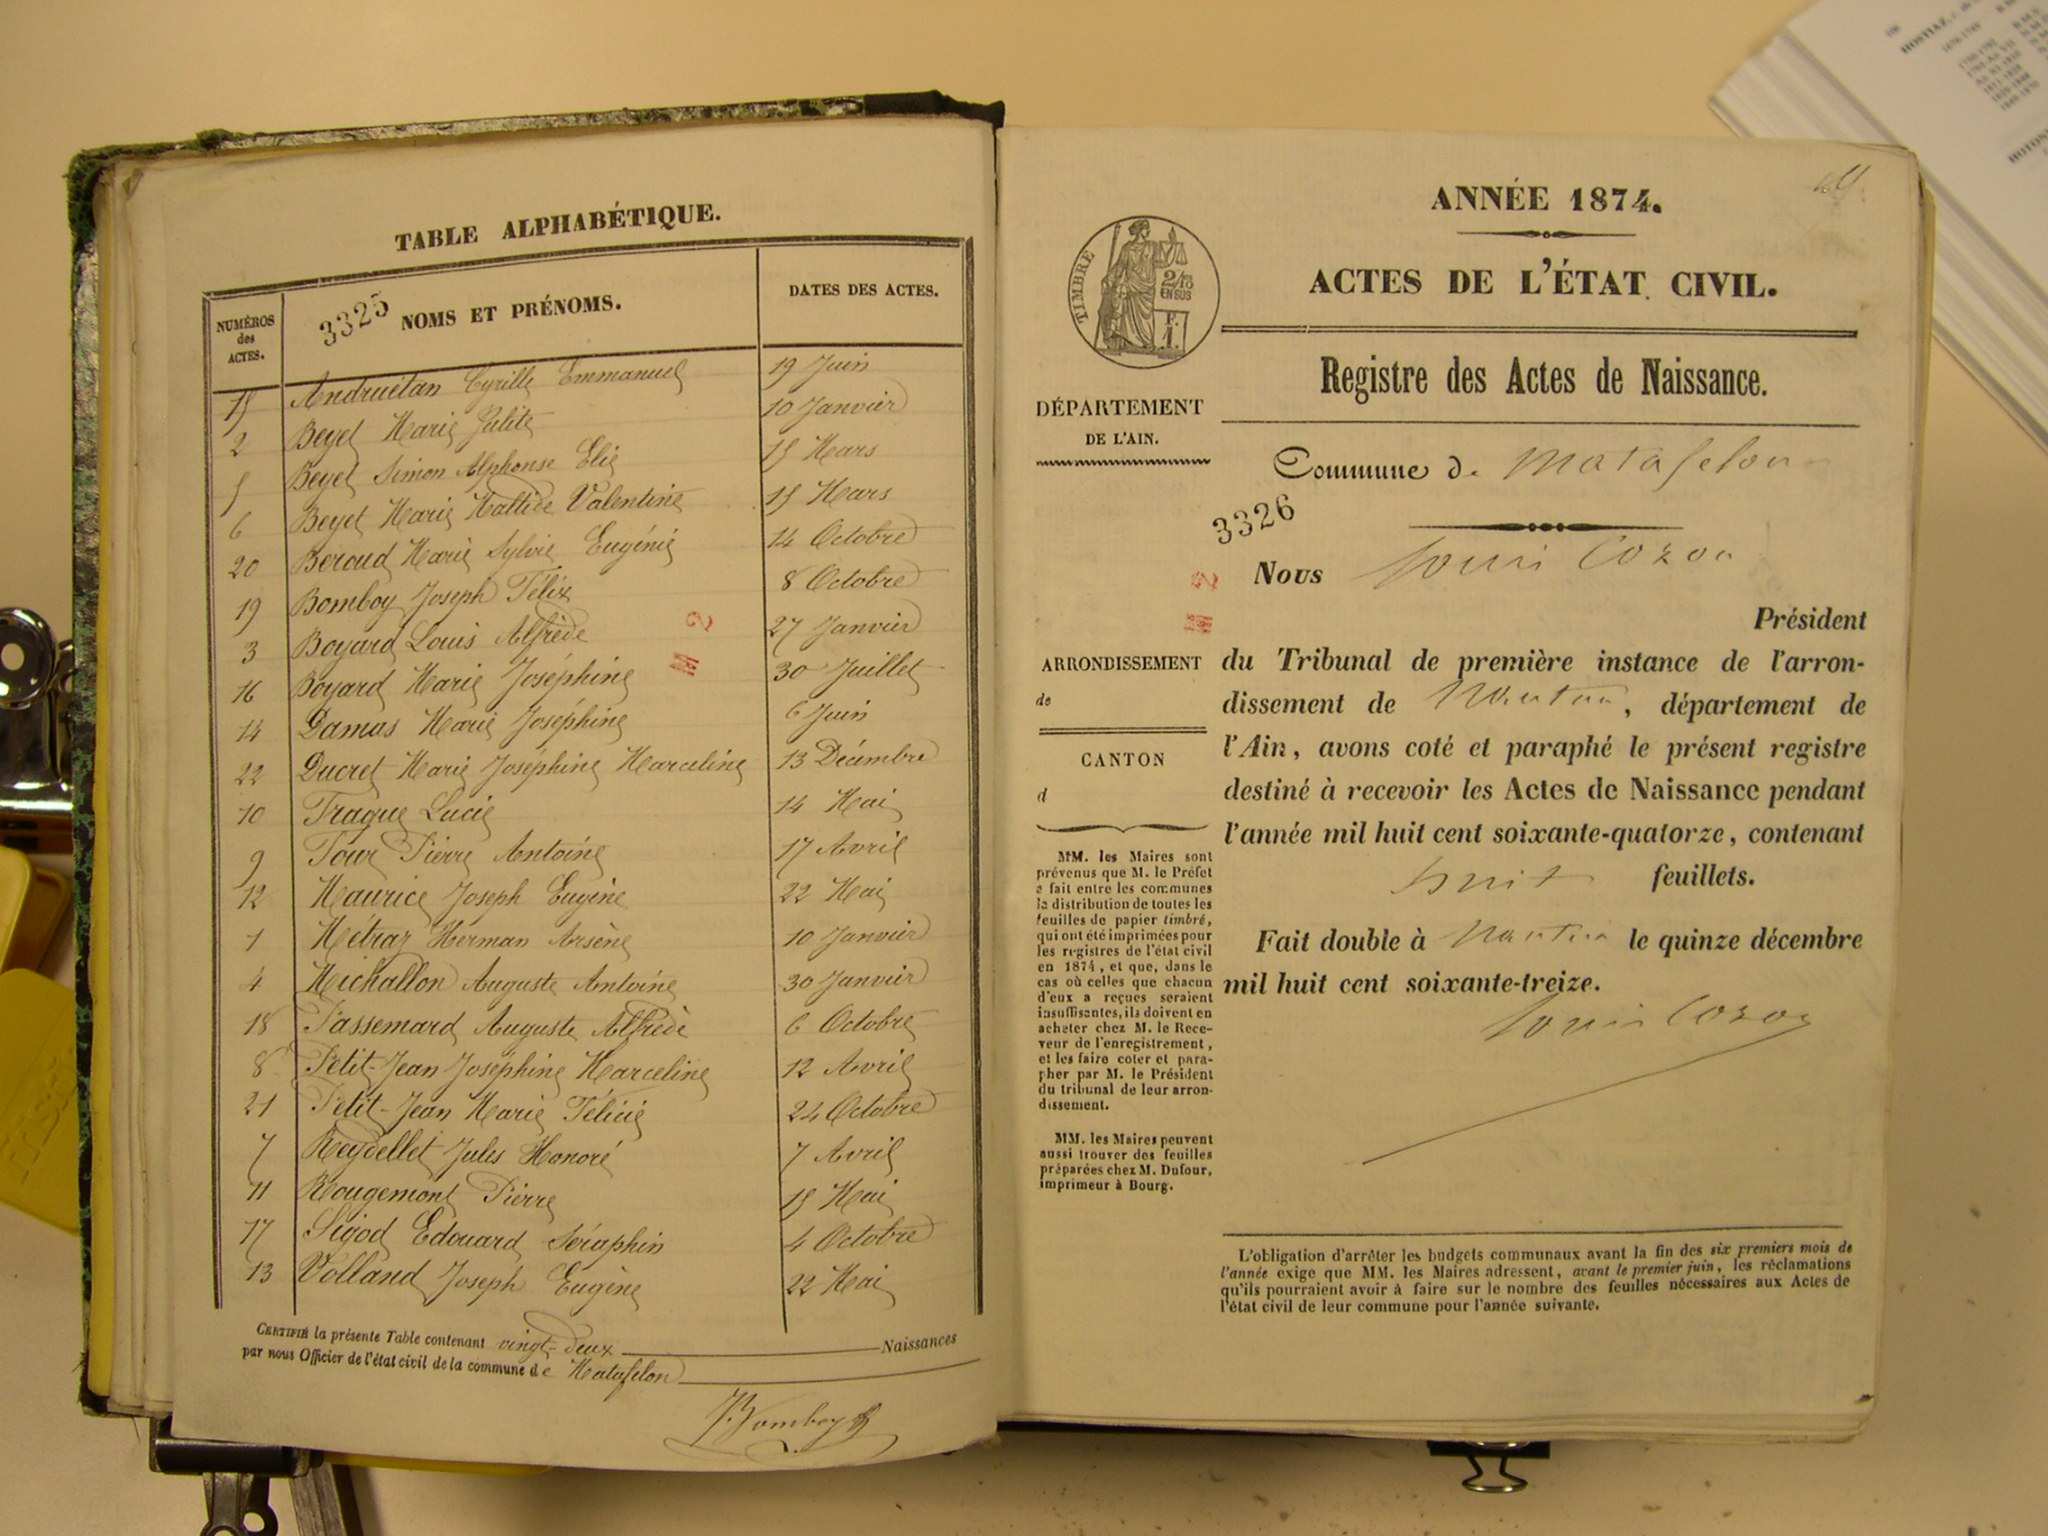 TABLE ALPHABÉTIQUE.
NUMÉROS des ACTES.
3325 NOMS ET PRÉNOMS.
DATES DES ACTES.
15 Andruétan Cyrille Emmanuel 19 Juin
2 Beyet Marie 10 Janvier
5 Beyet Simon Alphonse Elie 15 Mars
6 Beyet Marie Valentine 15 Mars
20 Béroud Marie Sylvie Eugénie 14 Octobre
19 Bomboy Joseph Félix 8 Octobre
3 Boyard Louis Alfrède 27 Janvier
16 Boyard Marie Joséphine 30 Juillet
14 Damas Marie Joséphine 6 Juin
22 Ducret Marie Joséphine Marceline 13 Décembre
10 Fragne Lucie 14 Mai
9 Four Pierre Antoine 17 Avril
12 Maurice Joseph Eugène 22 Mai
1 Métraz Herman Arsène 10 Janvier
4 Michallon Auguste Antoine 30 Janvier
18 Passemard Auguste Alfrède 6 Octobre
8 Petit-Jean Joséphine Marceline 12 Avril
21 Petit-Jean Marie Félicie 24 Octobre
7 Reydellet Jules Honoré 7 Avril
11 Rougemont Pierre 15 Mai
17 Sigod Edouard Séraphin 4 Octobre
13 Volland Joseph Eugène 22 Mai
CERTIFIÉ la présente Table contenant vingt-deux Naissances
par nous Officier de l'état civil de la commune de Matafelon
Bomboy
ANNÉE 1874.
ACTES DE L'ÉTAT CIVIL.
TIMBRE
2/10
EN SUS
F.
1.
Registre des Actes de Naissance.
DÉPARTEMENT
DE L'AIN.
Commune de Matafelon
3326
Nous Louis Cozon
Président
ARRONDISSEMENT
de
CANTON
d
du Tribunal de première instance de l'arron-
dissement de Nantua, département de
l'Ain, avons coté et paraphé le présent registre
destiné à recevoir les Actes de Naissance pendant
l'année mil huit cent soixante-quatorze, contenant
huit feuillets.
Fait double à Nantua le quinze décembre
mil huit cent soixante-treize.
Louis Cozon
MM. les Maires sont
prévenus que M. le Préfet
a fait entre les communes
la distribution de toutes les
feuilles de papier timbré,
qui ont été imprimées pour
les registres de l'état civil
en 1874, et que, dans le
cas où celles que chacun
d'eux a reçues seraient
insuffisantes, ils doivent en
acheter chez M. le Rece-
veur de l'enregistrement,
et les faire coter et para-
pher par M. le Président
du tribunal de leur arron-
dissement.
MM. les Maires peuvent
aussi trouver des feuilles
préparées chez M. Dufour,
imprimeur à Bourg.
L'obligation d'arrêter les budgets communaux avant la fin des six premiers mois de
l'année exige que MM. les Maires adressent, avant le premier juin, les réclamations
qu'ils pourraient avoir à faire sur le nombre des feuilles nécessaires aux Actes de
l'état civil de leur commune pour l'année suivante.